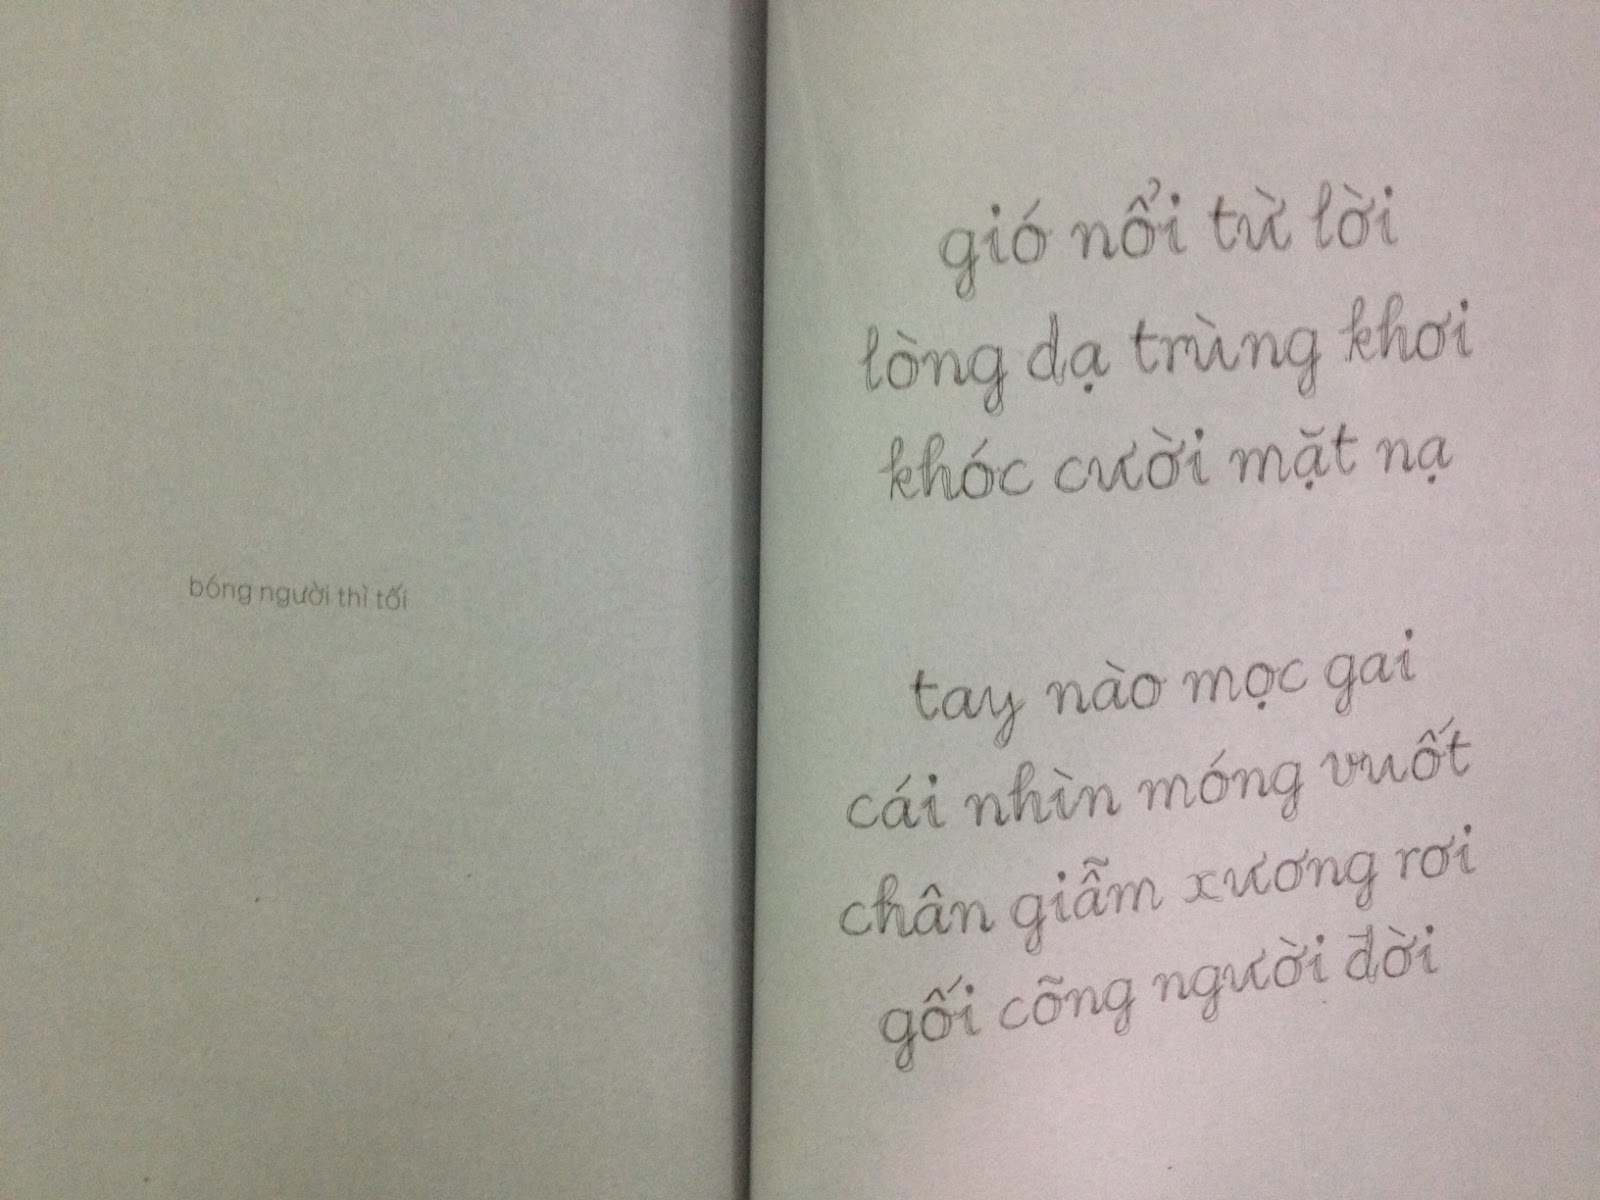 bóng người thì tối
gió nổi từ lời
lòng dạ trùng khơi
khóc cười mặt nạ
tay nào mọc gai
cái nhìn móng vuốt
chân giẫm xương rơi
gối cõng người đời